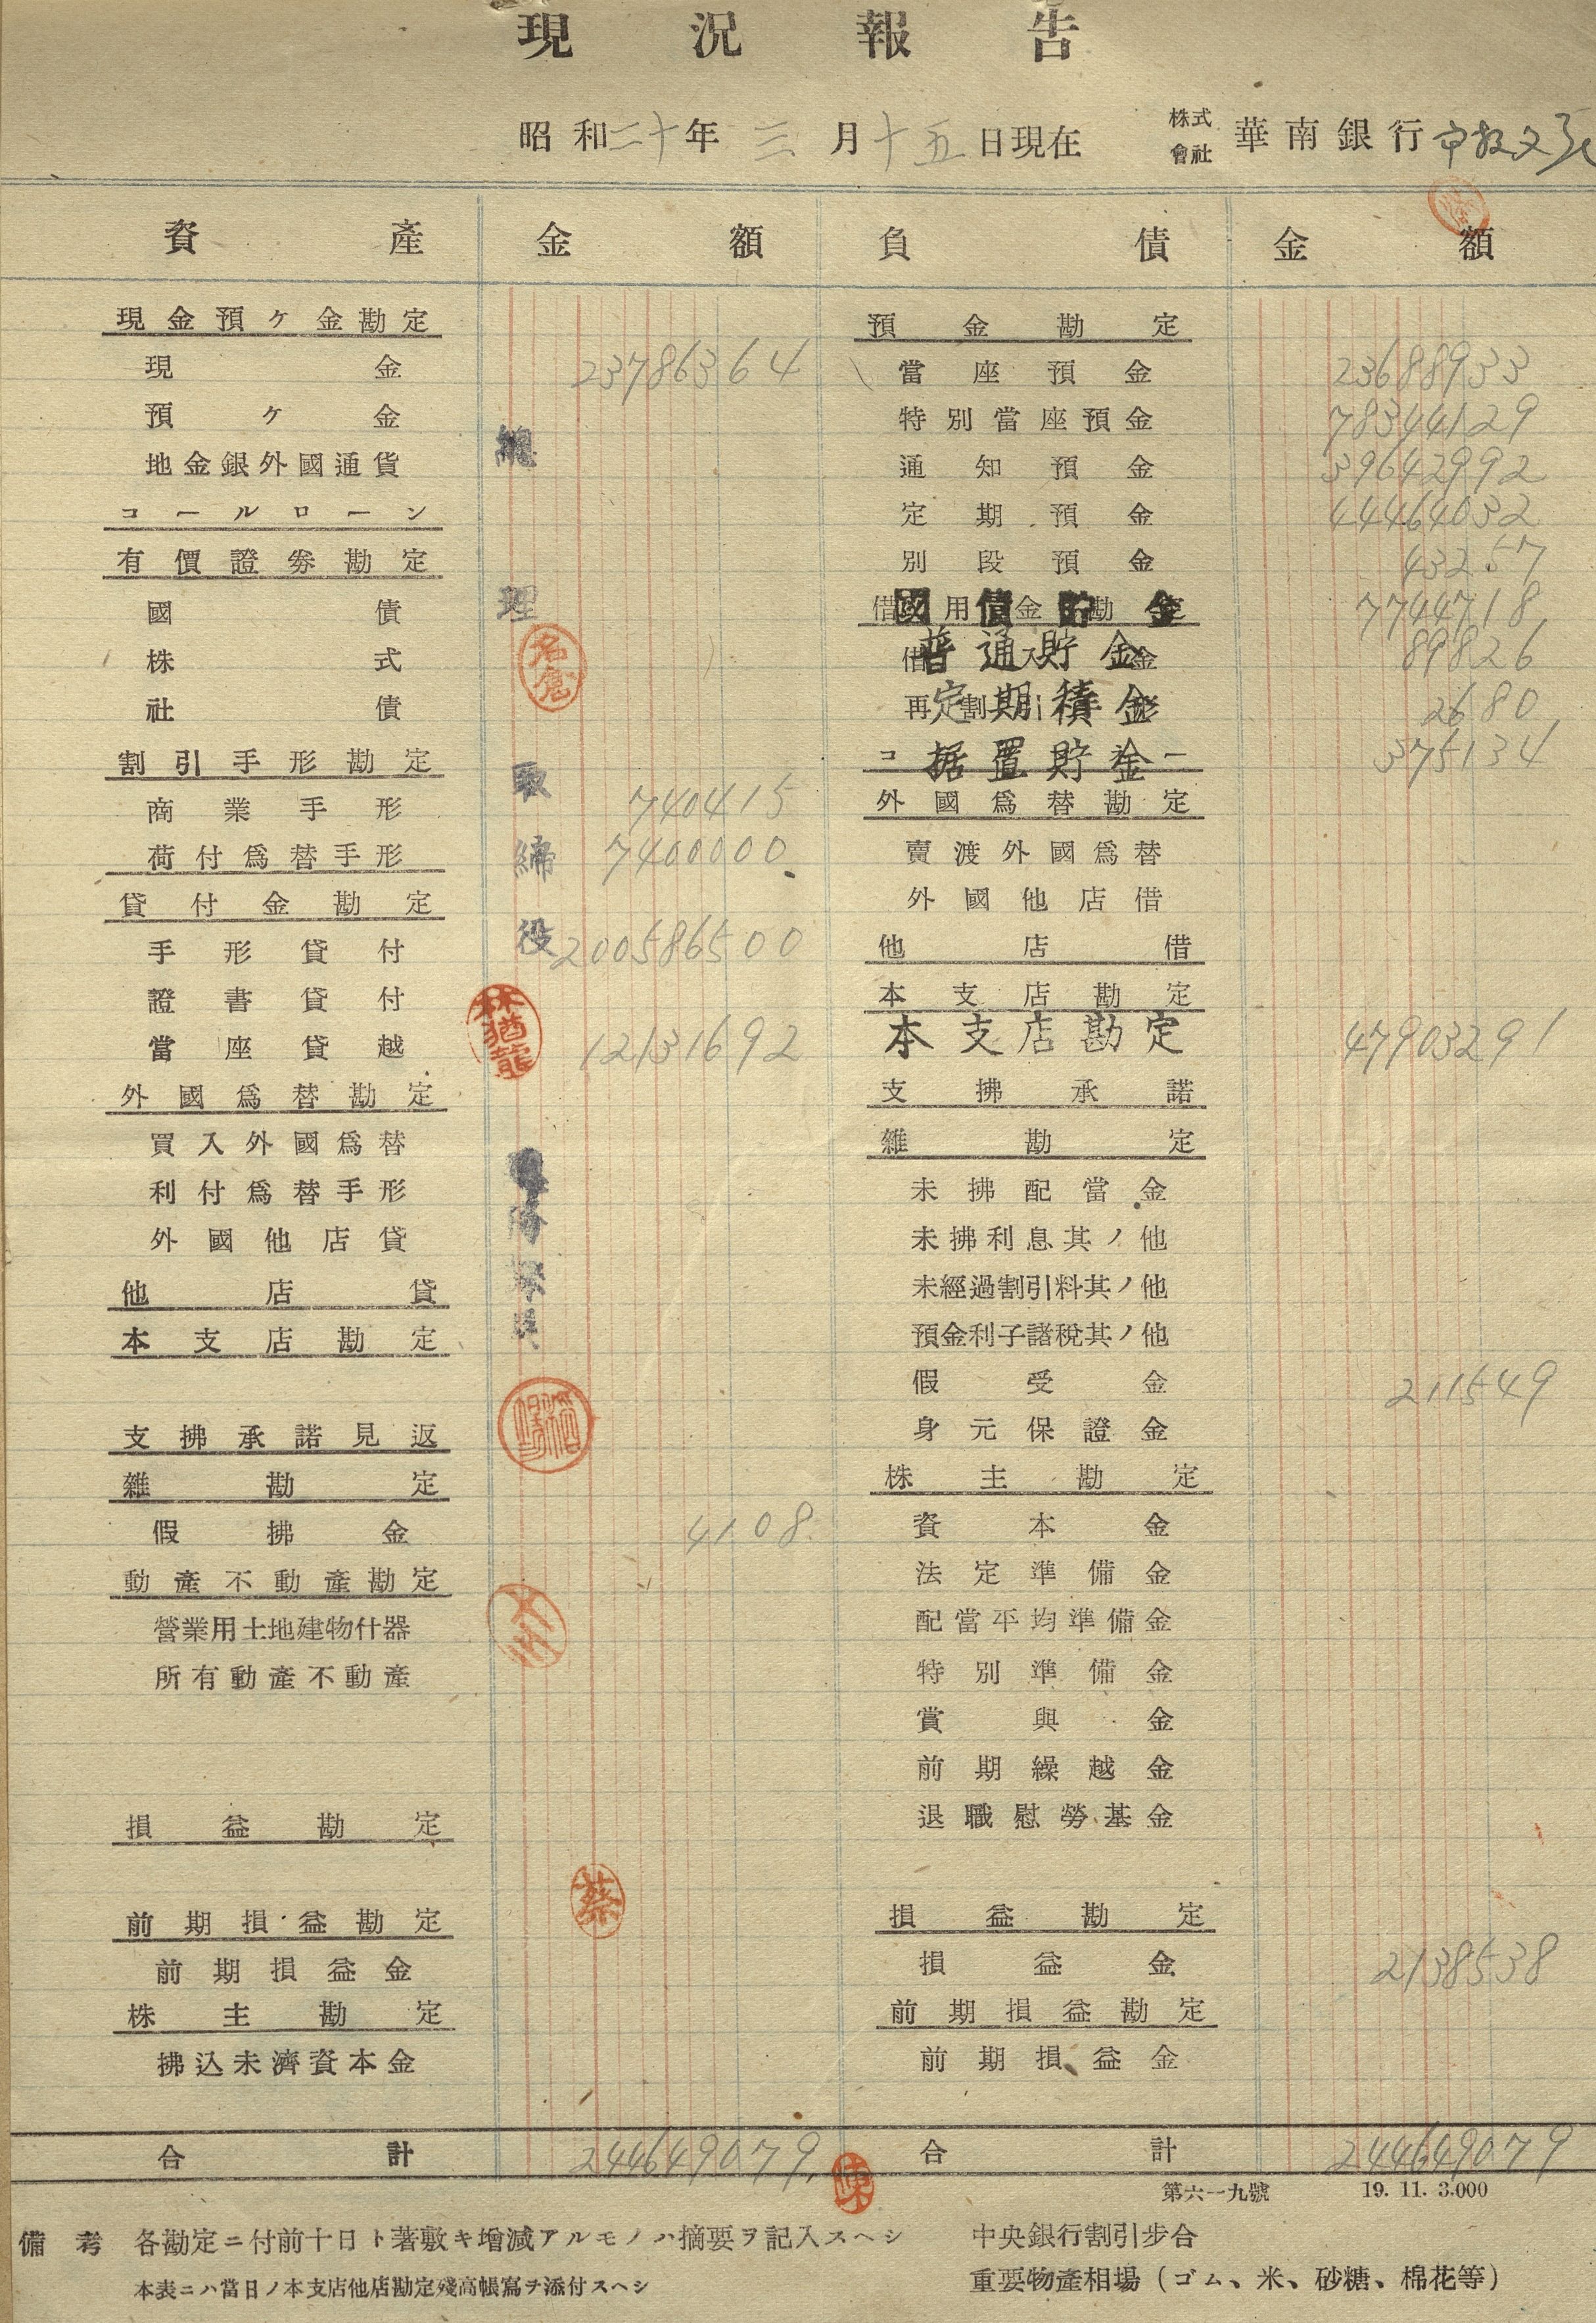 現況報告
昭和二十年三月十五日現在 株式會社 華南銀行
資產 金額 負債 金額
現金預ケ金勘定 預金勘定
現金 23786364 當座預金 23688933
預ケ金 特別當座預金 78344129
總
地金銀外國通貨 通知預金 39642992
コールローン 定期預金 44464032
有價證券勘定 別段預金 43257
國債 理 借用金勘定 國債貯金 7744718
名倉
株式 借入金 普通貯金 89826
社債 再割引手形 定期積金 2680
割引手形勘定 取 据置貯金 375134
商業手形 740415 外國爲替勘定
荷付爲替手形 締 7400000 賣渡外國爲替
貸付金勘定 外國他店借
手形貸付 役 200586500 他店借
證書貸付 本支店勘定
林猶龍
當座貸越 12131692 本支店勘定 47903291
外國爲替勘定 支拂承諾
買入外國爲替 雜勘定
利付爲替手形 未拂配當金
外國他店貸 未拂利息其ノ他
他店貸 未經過割引料其ノ他
本支店勘定 預金利子諸稅其ノ他
假受金 211549
支拂承諾見返 身元保證金
雜勘定 株主勘定
假拂金 4108 資本金
動產不動產勘定 法定準備金
營業用土地建物什器 配當平均準備金
所有動產不動產 特別準備金
賞與金
前期繰越金
損益勘定 退職慰勞基金
蔡
前期損益勘定 損益勘定
前期損益金 損益金 2138538
株主勘定 前期損益勘定
拂込未濟資本金 前期損益金
合計 244649079 合計 244649079
陳
第六一九號 19. 11. 3.000
備考 各勘定ニ付前十日ト著敷キ增減アルモノハ摘要ヲ記入スヘシ 中央銀行割引步合
本表ニハ當日ノ本支店他店勘定殘高帳寫ヲ添付スヘシ 重要物產相場(ゴム、米、砂糖、棉花等)